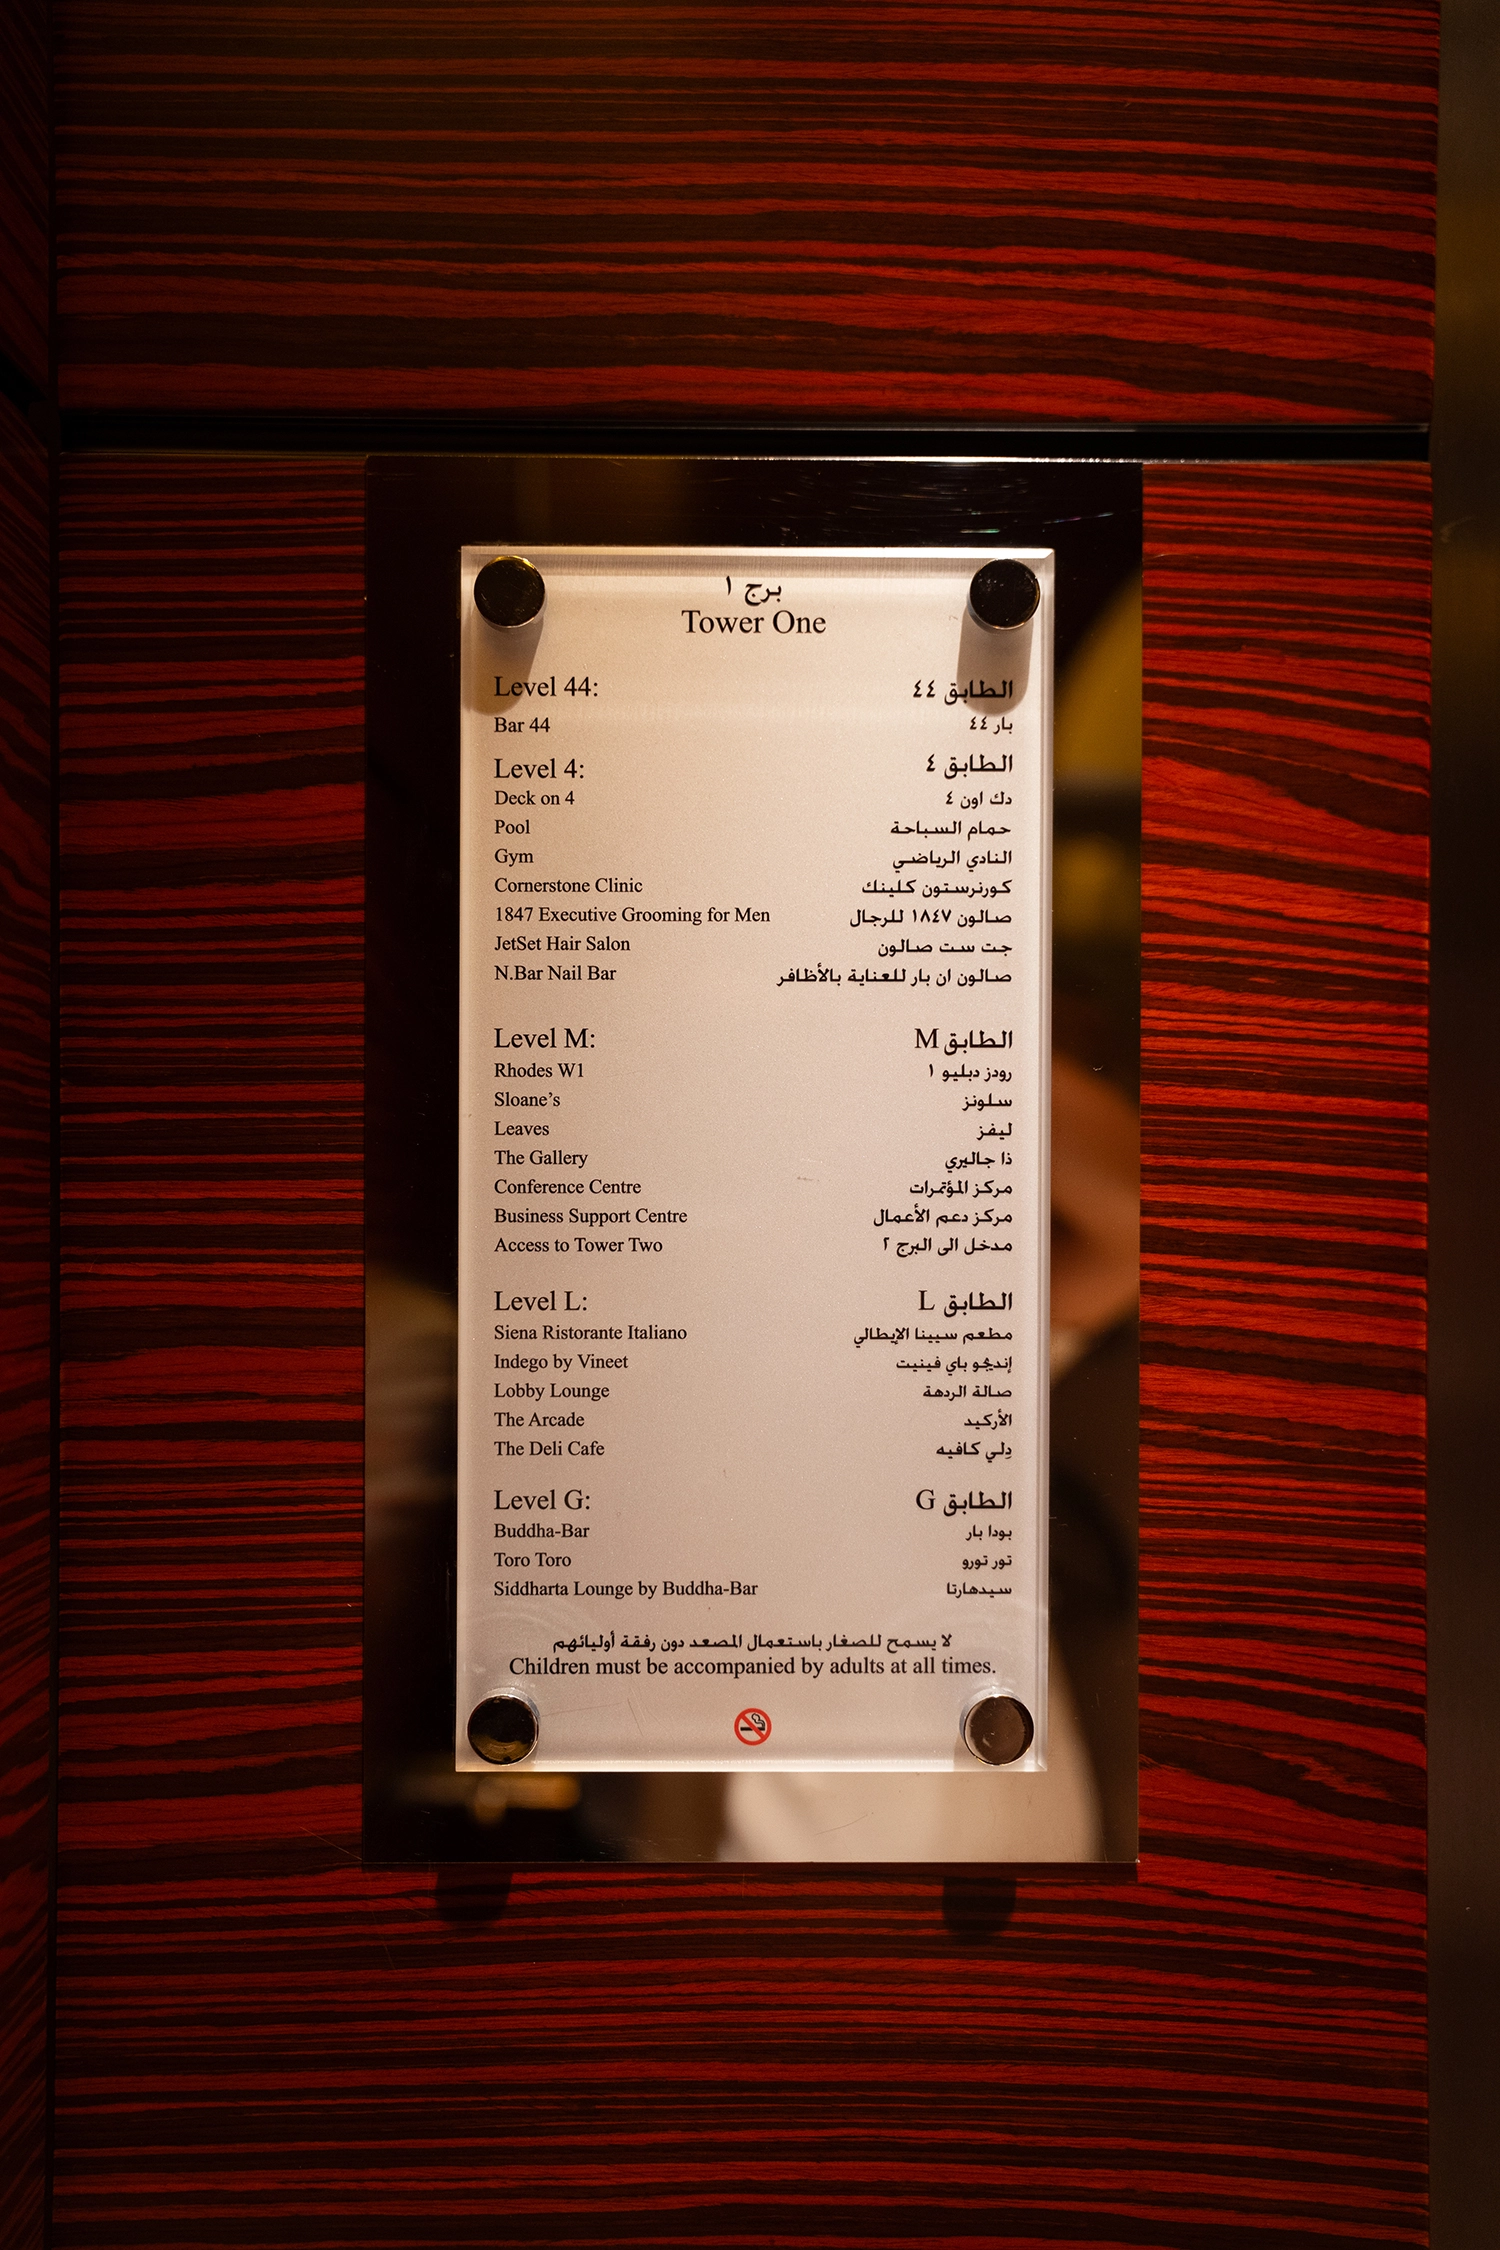 برج ١
Tower One
Level 44: الطابق ٤٤
Bar 44 بار ٤٤
Level 4: الطابق ٤
Deck on 4 دك اون ٤
Pool حمام السباحة
Gym النادي الرياضي
Cornerstone Clinic كورنرستون كلينك
1847 Executive Grooming for Men صالون ١٨٤٧ للرجال
JetSet Hair Salon جت ست صالون
N.Bar Nail Bar صالون ان بار للعناية بالأظافر
Level M: الطابق M
Rhodes W1 رودز دبليو ١
Sloane’s سلونز
Leaves ليفز
The Gallery ذا جاليري
Conference Centre مركز المؤتمرات
Business Support Centre مركز دعم الأعمال
Access to Tower Two مدخل الى البرج ٢
Level L: الطابق L
Siena Ristorante Italiano مطعم سيينا الإيطالي
Indego by Vineet إنديجو باي فينيت
Lobby Lounge صالة الردهة
The Arcade الأركيد
The Deli Cafe دِلي كافيه
Level G: الطابق G
Buddha-Bar بودا بار
Toro Toro تور تورو
Siddharta Lounge by Buddha-Bar سيدهارتا
لا يسمح للصغار باستعمال المصعد دون رفقة أوليائهم
Children must be accompanied by adults at all times.